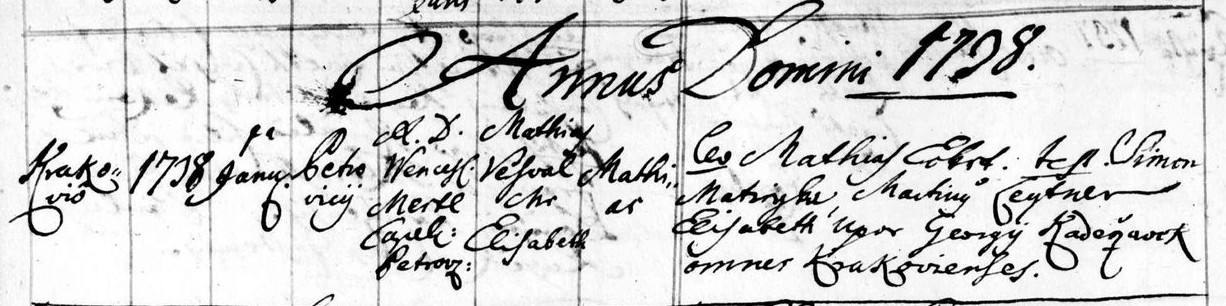 Annus Domini 1738.
Krako-
viō
1738
1ª
Janu.
Petro
vicij
A. D.
Wencesl:
Merte
Capel:
Petrov:
Mathias
Vesval
chr
Elisabeth
Mathi-
as
Leo Mathias test. Simon
Martiny Zeytner
Elisabeth uxor Georgij
omnes Krakovienses.